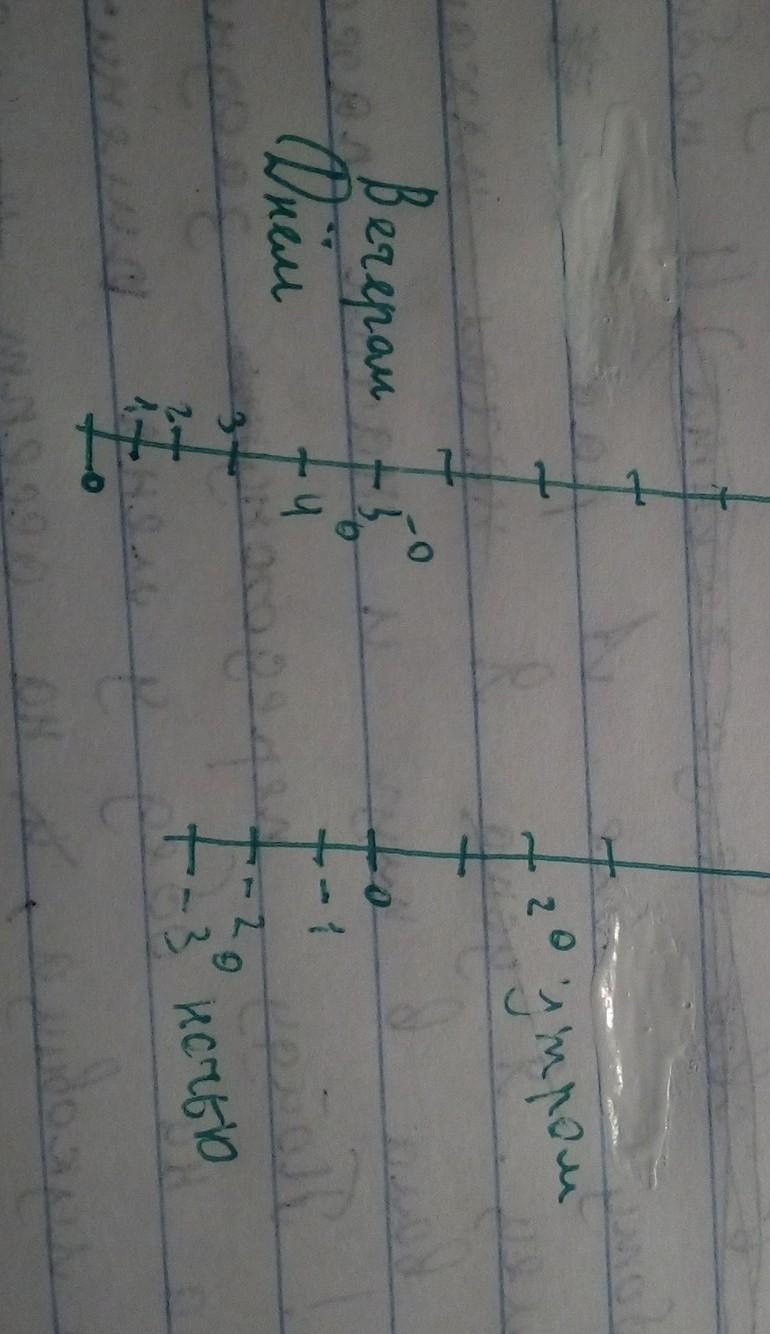 2° утром
Вечером
5°
Днём
4°
3
2
1
0
0
-1
-2
-3° ночью